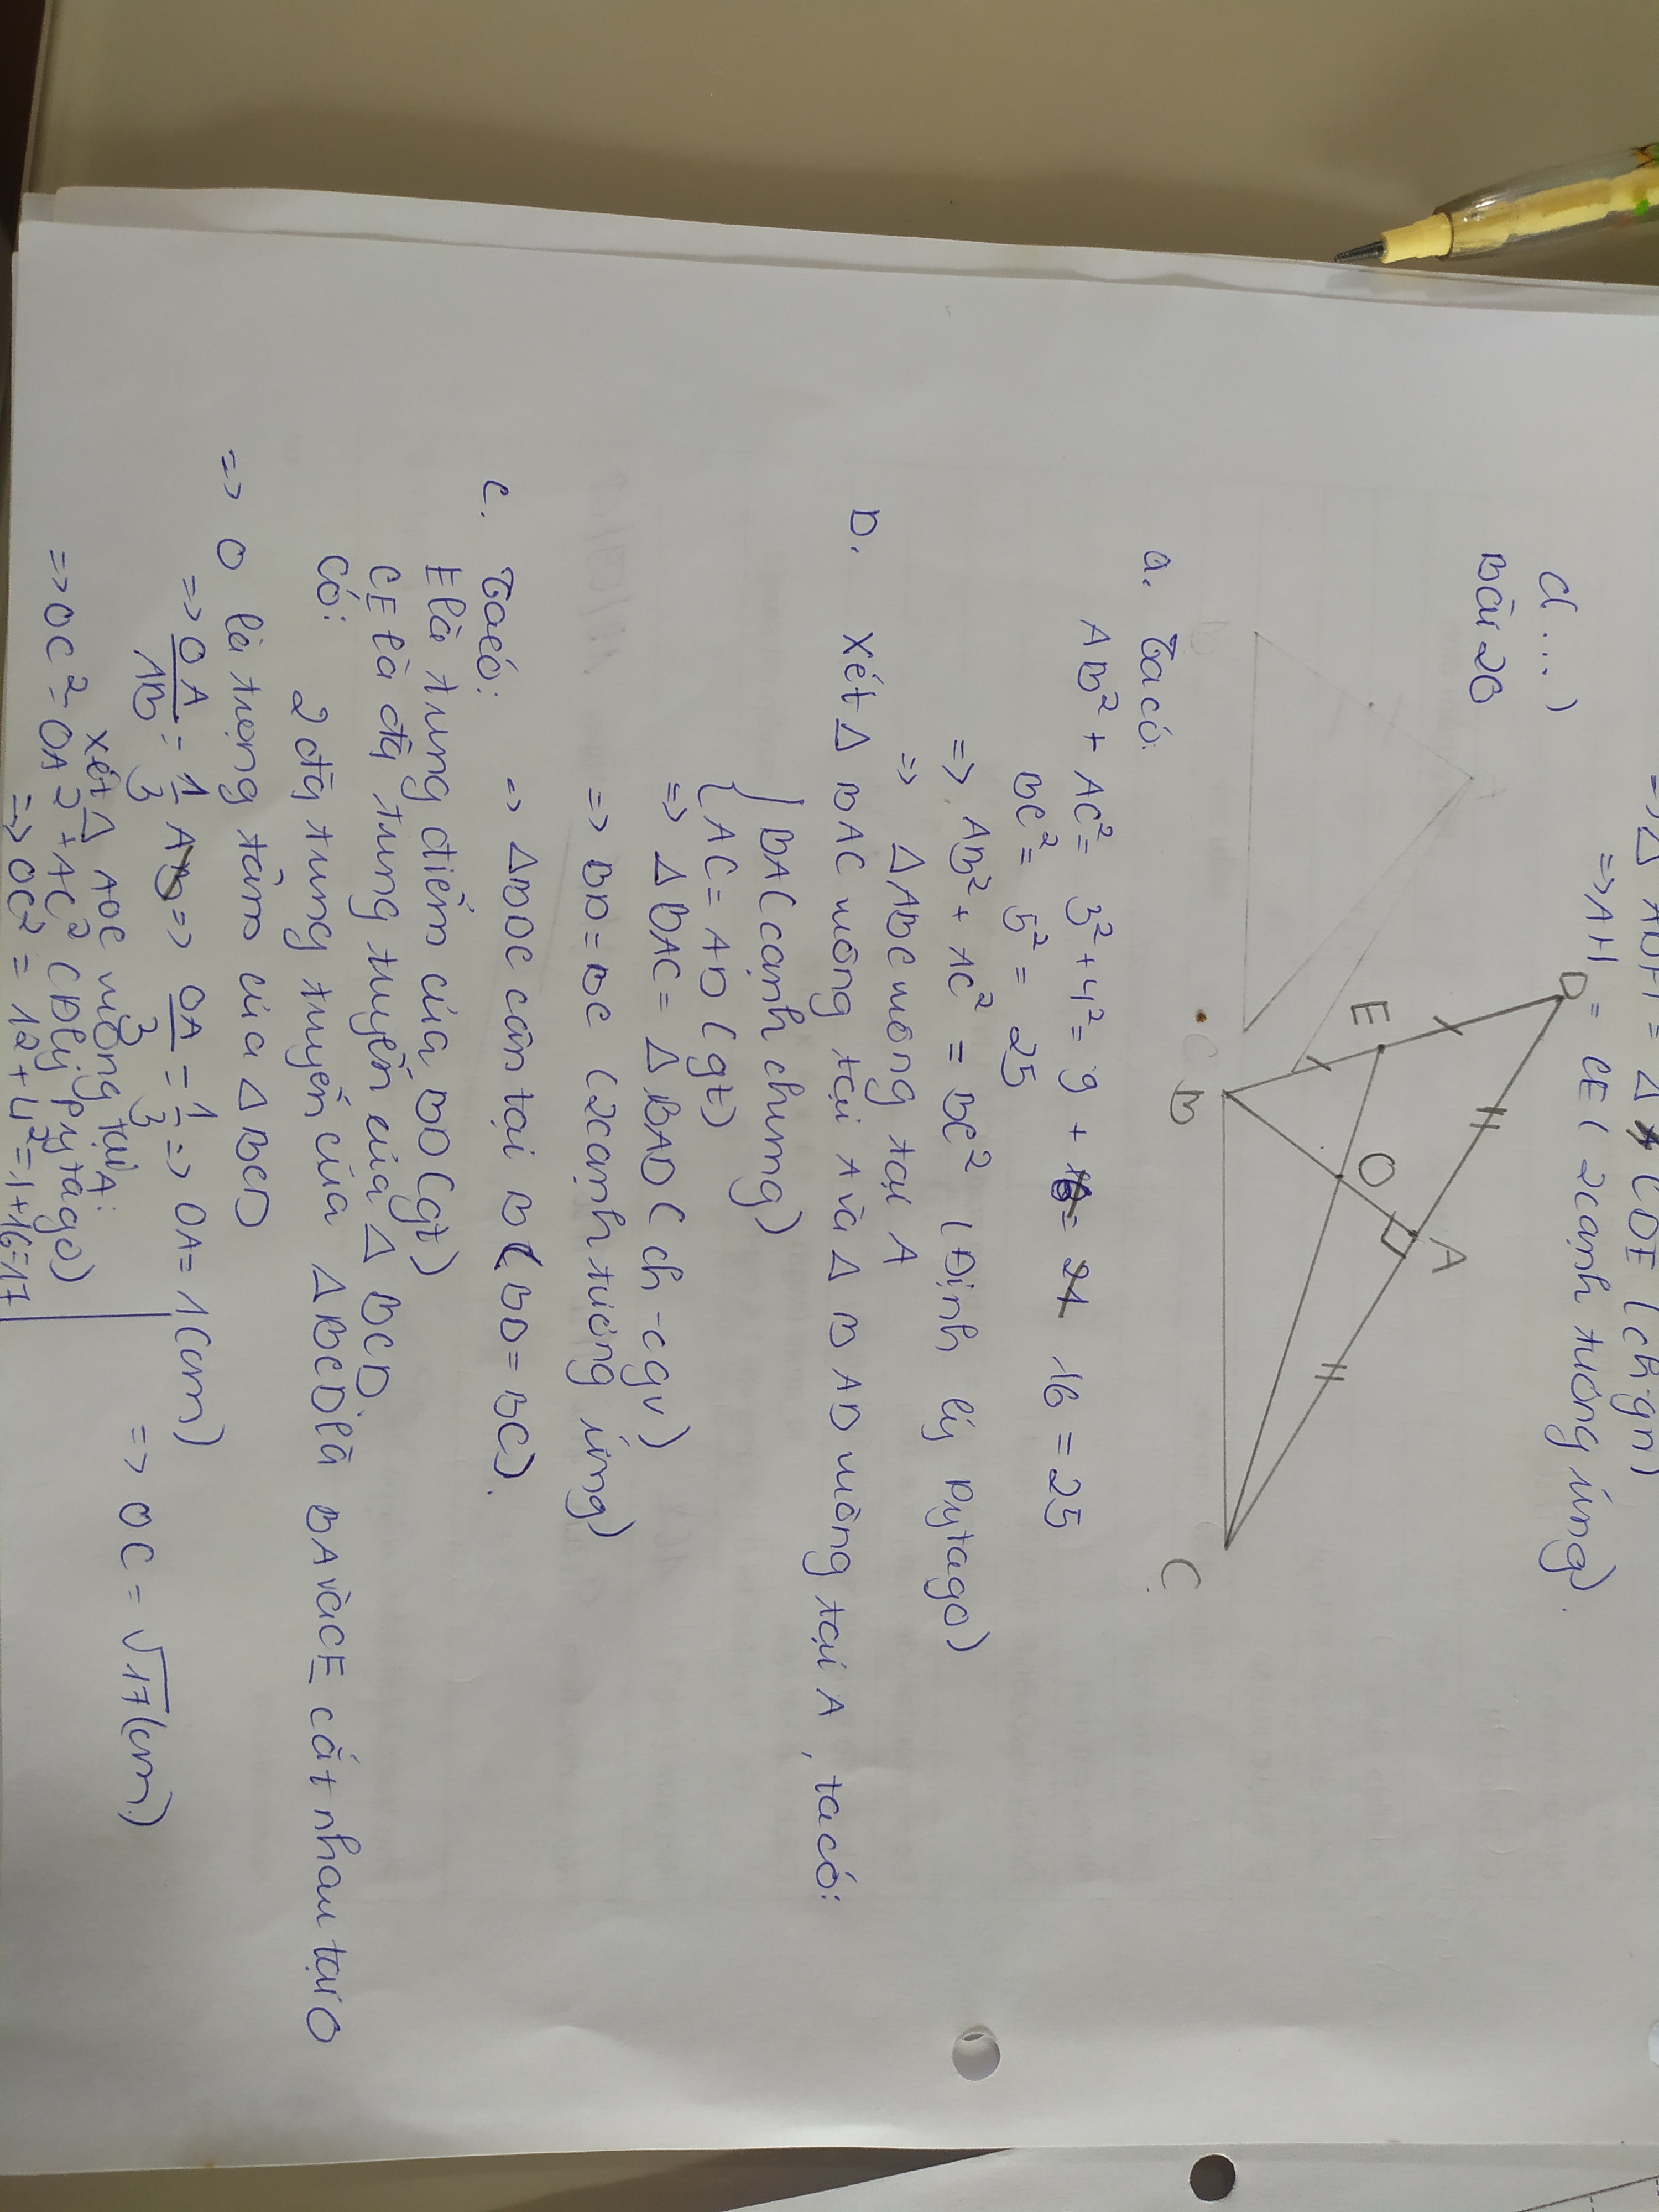 => Δ ADH = Δ CDE (ch-gn)
=> AH = CE ( 2 cạnh tương ứng).
d....)
Bài 20
D
E
A
O
B
C
a. Ta có:
AB² + AC² = 3² + 4² = 9 + 16 = 25
BC² = 5² = 25
=> AB² + AC² = BC² (Định lý Pytago)
=> Δ ABC vuông tại A
b. Xét Δ BAC vuông tại A và Δ BAD vuông tại A, ta có:
{ BA (cạnh chung)
AC = AD (gt)
=> Δ BAC = Δ BAD (ch-cgv)
=> BD = BC (2 cạnh tương ứng)
=> ΔBDC cân tại B (BD = BC).
c. Ta có:
E là trung điểm của BD (gt)
CE là đg trung tuyến của Δ BCD.
Có: 2 đg trung tuyến của Δ BCD là BA và CE cắt nhau tại O
=> O là trọng tâm của Δ BCD
=> OA/AB = 1/3 => OA/3 = 1/3 => OA = 1 (cm)
Xét Δ AOC vuông tại A:
=> OC² = OA² + AC² (Đlý Pytago)
=> OC² = 1² + 4² = 1 + 16 = 17
=> OC = √17 (cm)